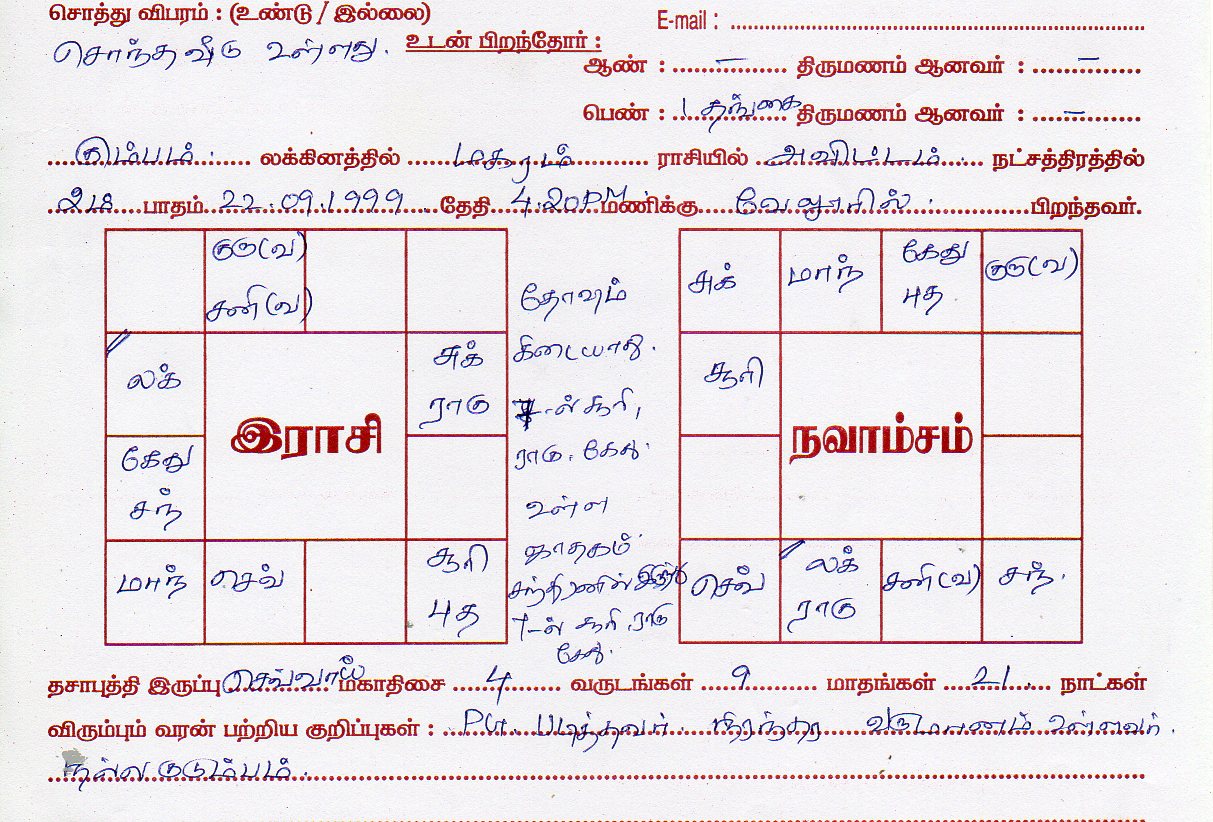 சொத்து விபரம் : (உண்டு / இல்லை)
E-mail :
சொந்த வீடு உள்ளது.
உடன் பிறந்தோர் :
ஆண் : – திருமணம் ஆனவர் : –
பெண் : 1 தங்கை திருமணம் ஆனவர் : –
கும்பம். லக்கினத்தில் மகரம் ராசியில் அவிட்டம் நட்சத்திரத்தில்
2ம் பாதம் 22.09.1999 தேதி 4.20PM மணிக்கு வேலூரில் பிறந்தவர்.
குரு(வ)
சனி(வ)
லக்
சுக்
ராகு
இராசி
கேது
சந்
மாந்
செவ்
சூரி
புத
தோஷம்
கிடையாது.
7-ல் சூரி,
ராகு, கேது.
உள்ள
ஜாதகம்
சந்திரனின்
7-ல் சூரி, ராகு
கேது.
சுக்
மாந்
கேது
புத
குரு(வ)
சூரி
நவாம்சம்
செவ்
லக்
ராகு
சனி(வ)
சந்.
தசாபுத்தி இருப்பு செவ்வாய் மகாதிசை 4 வருடங்கள் 9 மாதங்கள் 21 நாட்கள்
விரும்பும் வரன் பற்றிய குறிப்புகள் : PG. படித்தவர். நிரந்தர வருமானம் உள்ளவர்.
நல்ல குடும்பம்.